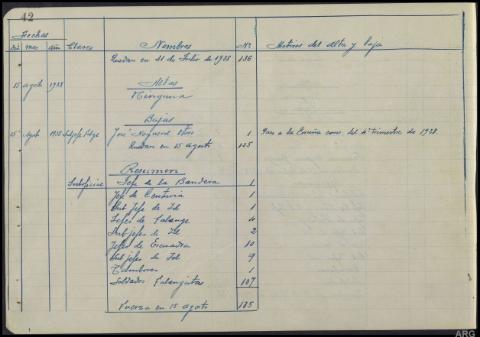 42
Fechas
Dia mes año Clases Nombres Nº Motivos del alta y baja
Quedan en 31 de Julio de 1938 136
15 agstº 1938 Altas
Ninguna
Bajas
15 Agstº 1938 José Nogueira 1 Pasa a la Coruña 1938.
Quedan en 15 agostº 135
Resumen
Jefe de la Bandera 1
Jefe de Centuria 1
Sub Jefe de Id 1
Jefes de Falange 4
Sub jefes de Id 2
Jefes de Escuadra 10
Sub jefes de Id 9
Tambores 1
Soldados Falangistas 107
Fuerza en 15 agostº 135
ARG